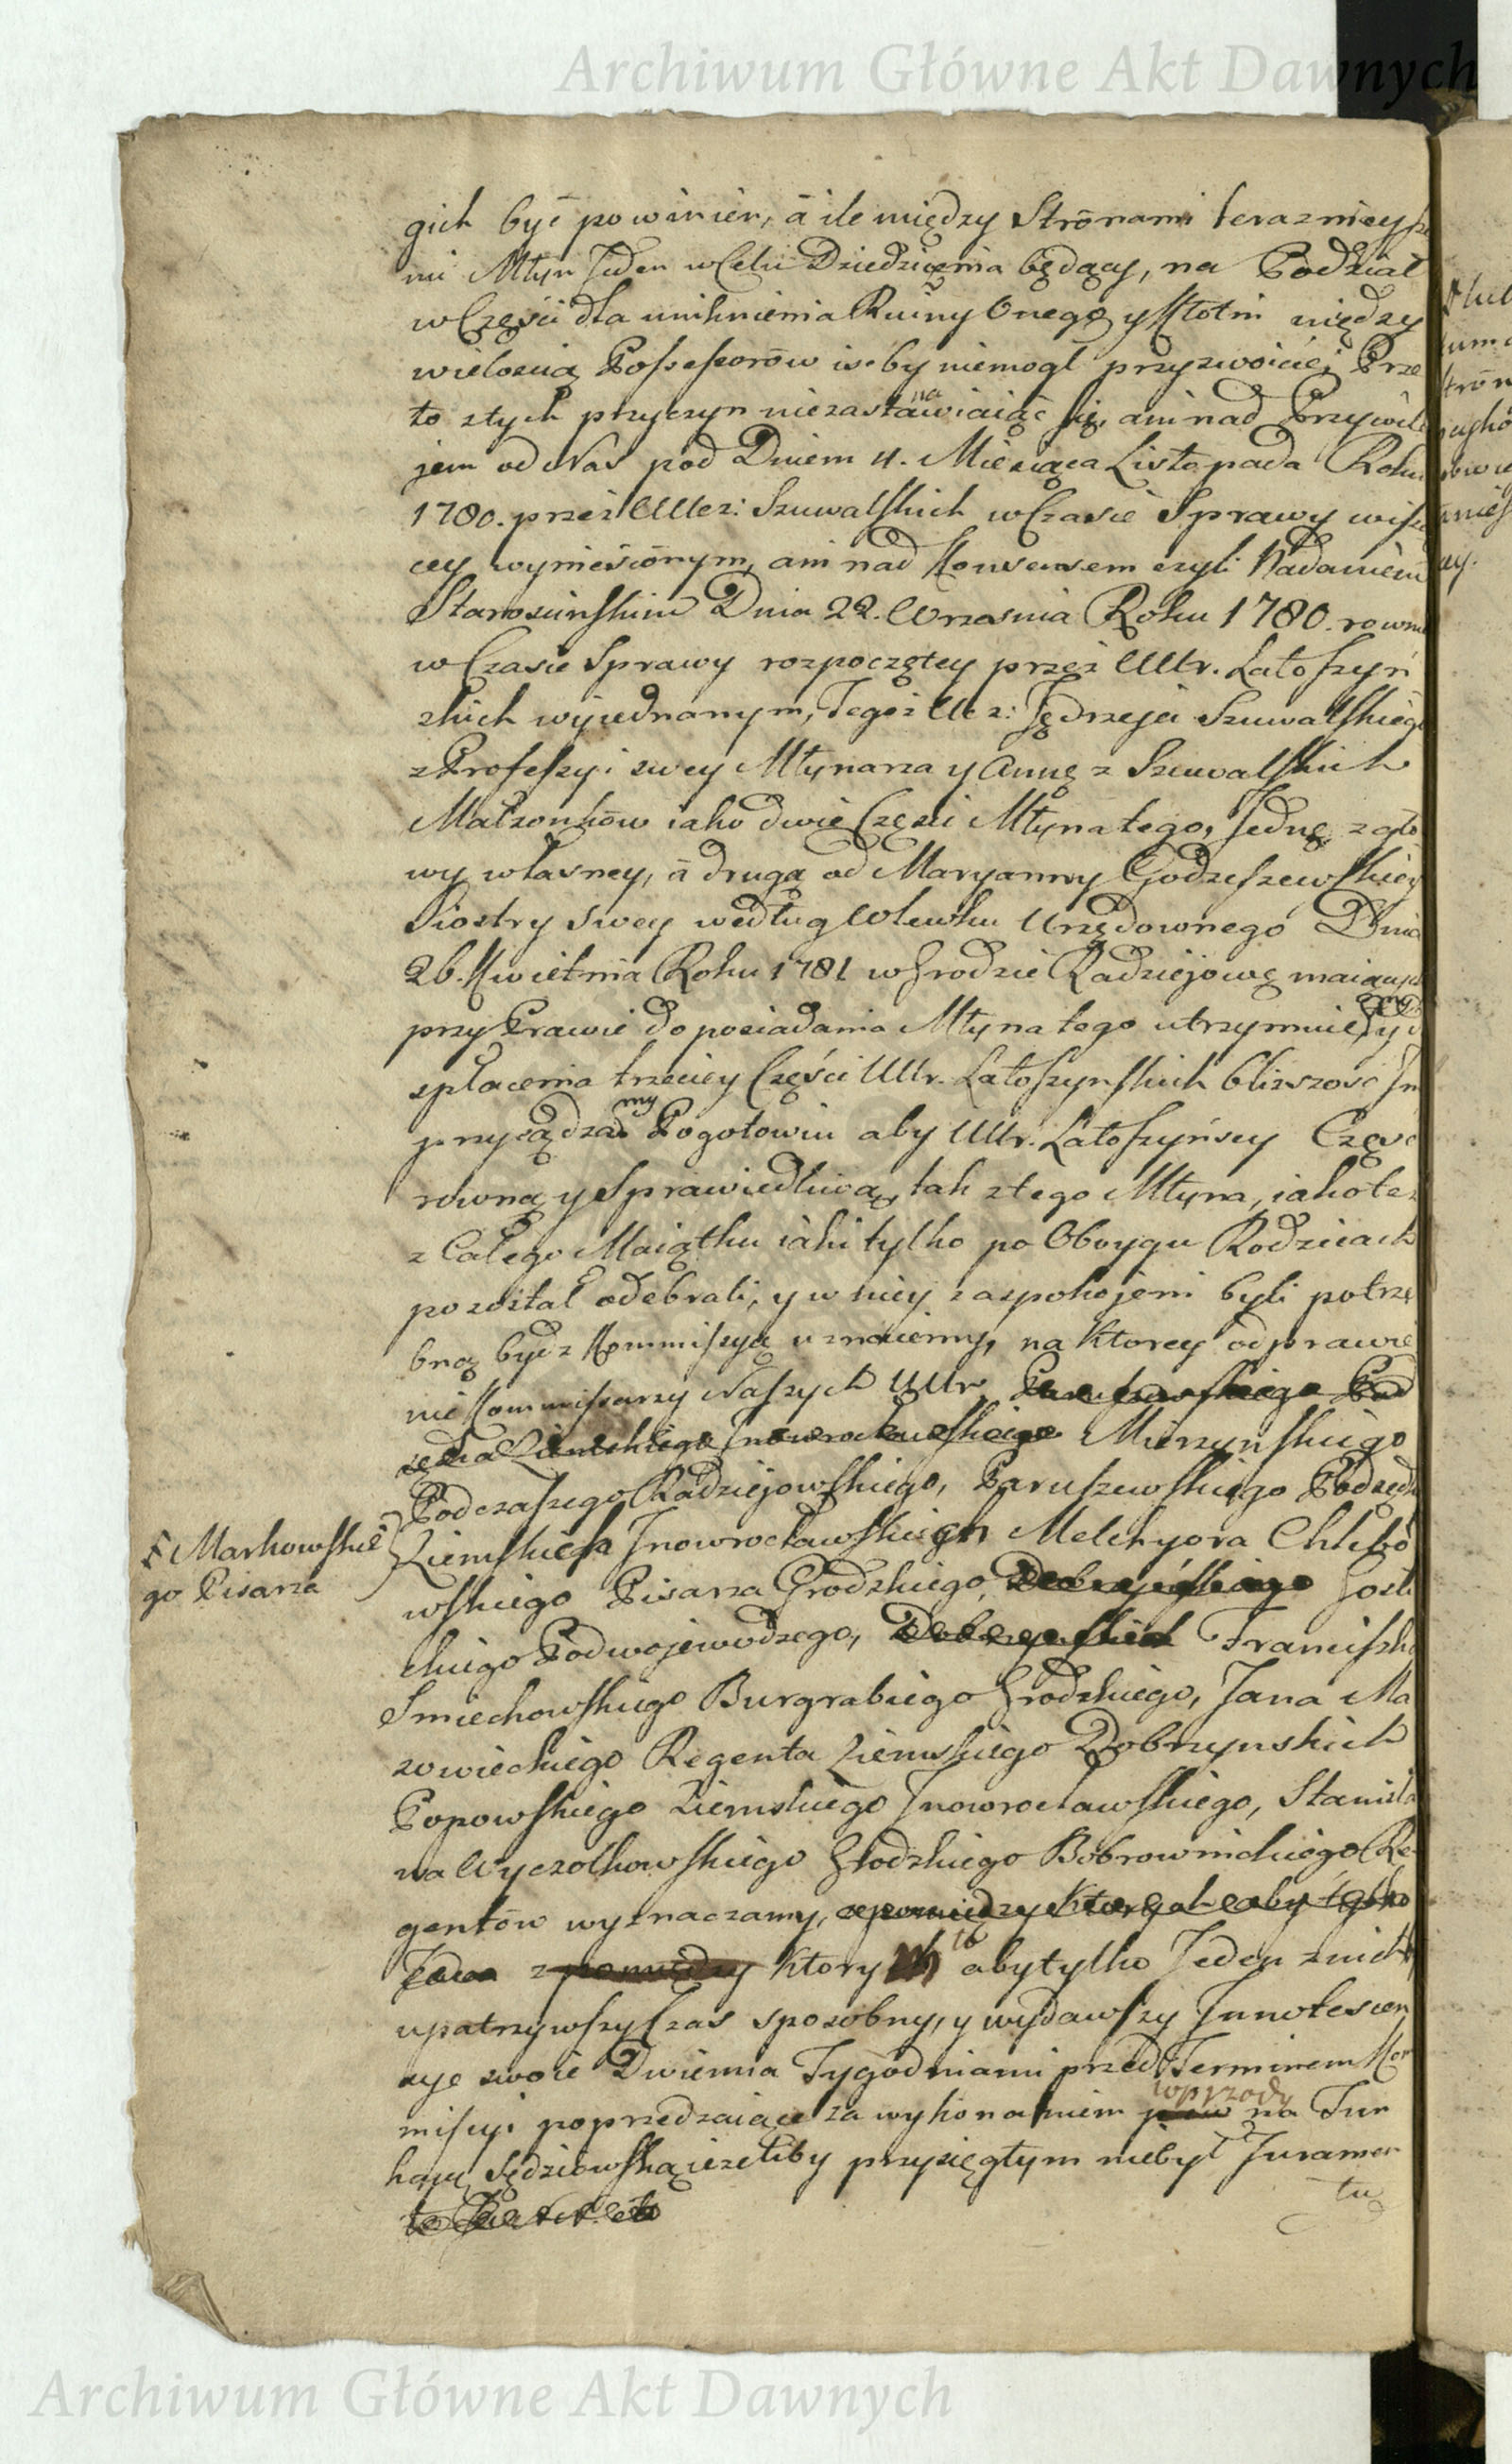 Archiwum Główne Akt Dawnych
gich być powinien, á ile między Stronami teraznieysze
mi Młyn Jeden w Celu Dziedzienia będący, na Podział
w Części dla uniknienia Ruiny Onego y Kłotni między
wielością Possessorów iść by niemogł przyzwoicie; Prze
to z tych przyczyn niezastanawiaiąc się, ani nad Przywile
jem od Nas pod Dniem 11. Miesiąca Listopada Roku
1780. przez UUcz: Szuwalskich w Czasie Sprawy wiszą
cey wyniesionym, ani nad Konsensem czyli Nadaniem
Starościnskim Dnia 22. Wrzesnia Roku 1780. rowno
w Czasie Sprawy rozpoczętey przez UUr. Latoszyń
skich wyiednanym, Tegoż Ucz: Jędrzeja Szuwalskiego
z Professyi swey Młynarza y Annę z Szuwalskich
Małżonków iako dwie Części Młyna tego, Jednę z gło
wy własney, á drugą od Maryanny Godzeszewskiey
Siostry swey według Wlewku Urzędownego Dnia
26. Kwietnia Roku 1781 w Grodzie Radziejowę maiących
przy Prawie do posiadania Młyna tego utrzymuiemy y do
spłacenia trzeciey Części UUr. Latoszynskich bliższość Im
przysądzamy Pogotowiu aby UUr. Latoszyńscy Część
rowną y Sprawiedliwą, tak z tego Młyna, iako też
z Całego Maiątku iaki tylko po Oboygu Rodzicach
pozostał odebrali, y w niey zaspokojeni byli potrze
bną bydź Kommissyą uznaiemy, na ktorey odprawie
nie Kommissarzy Naszych UUr. Paruszewskiego Pod
sędka Ziemskiego Inowrocławskiego Mierzynskiego
Podczaszego Radziejowskiego, Paruszewskiego Podsędka
Markowskie
go Pisarza
Ziemskich Inowrocławskich Melchyora Chlebo
wskiego Pisarza Grodzkiego, Dobrzyńskiego
ckiego Podwojewodzego, Dobrzynskich Franciszka
Smiechowskiego Burgrabiego Grodzkiego, Jana Ma
zowieckiego Regenta Ziemskiego Dobrzynskich
Popowskiego Ziemskiego Inowrocławskiego, Stanisła
wa Wyczołkowskiego Grodzkiego Bobrownickiego Re
gentów wyznaczamy, zpomiędzy ktorych aby tylko
Jeden zpomiędzy ktorych to aby tylko Jeden z nich
upatrzywszy Czas sposobny, y wydawszy Innotescen
cye swoie Dwiema Tygodniami przed Terminem Kom
missyi poprzedzaiące za wykonaniem wprzody na Fun
kcyę Sędziowską ieżeliby przysięgłym niebył Juramen
tu
Archiwum Główne Akt Dawnych